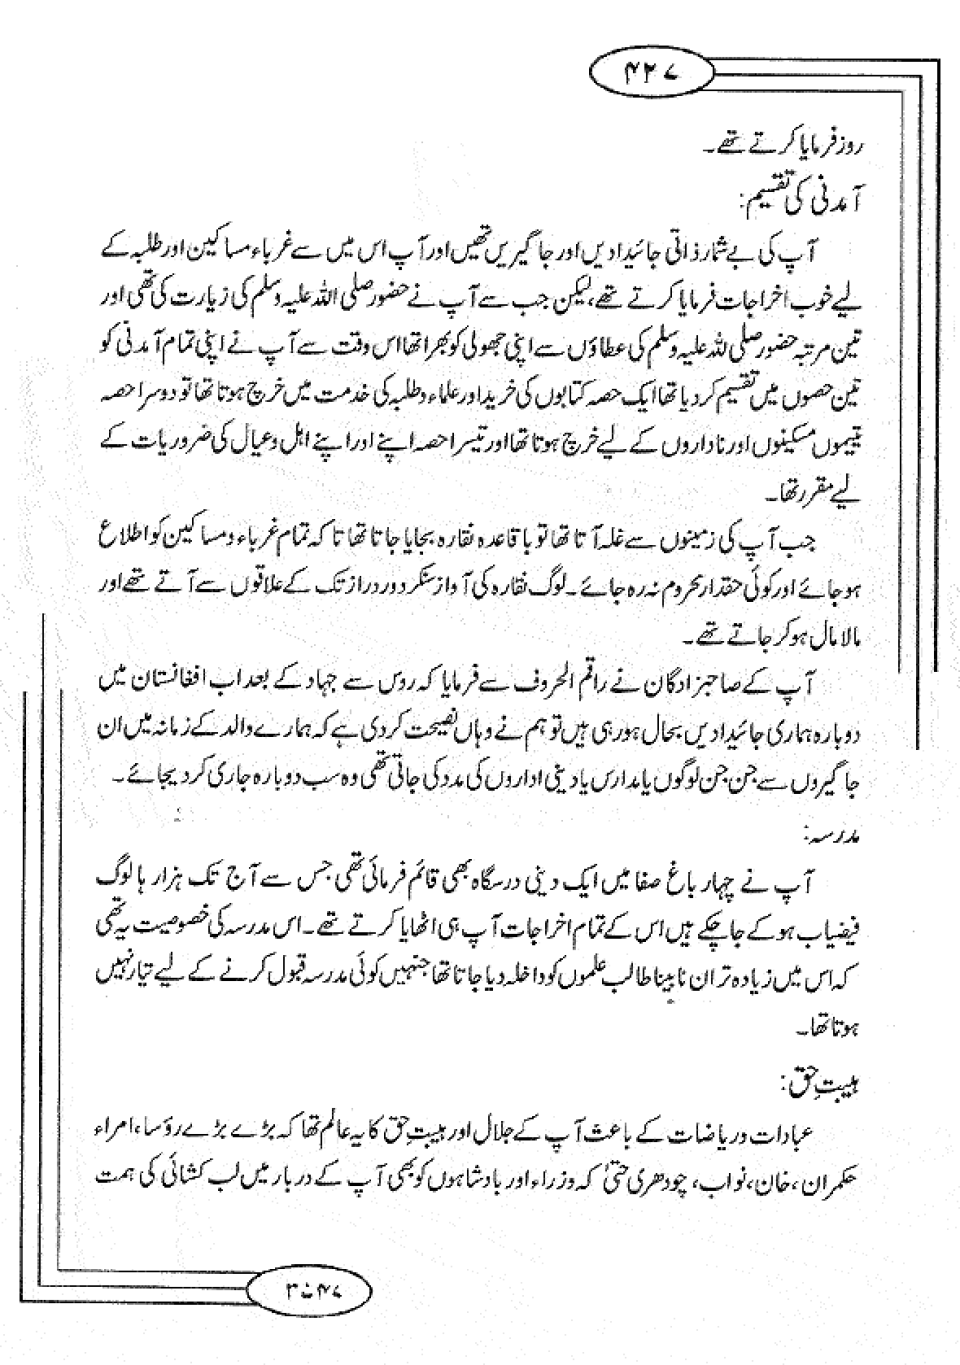 ۴۲۷
روز فرمایا کرتے تھے۔
آمدنی کی تقسیم:
آپ کی بے شمار ذاتی جائیدادیں اور جاگیریں تھیں اور آپ اس میں سے غرباء مساکین اور طلبہ کے
لیے خوب اخراجات فرمایا کرتے تھے، لیکن جب سے آپ نے حضور صلی اللہ علیہ وسلم کی زیارت کی تھی اور
تین مرتبہ حضور صلی اللہ علیہ وسلم کی عطاؤں سے اپنی جھولی کو بھرا تھا اس وقت سے آپ نے اپنی تمام آمدنی کو
تین حصوں میں تقسیم کر دیا تھا ایک حصہ کتابوں کی خرید اور علماء و طلبہ کی خدمت میں خرچ ہوتا تھا تو دوسرا حصہ
یتیموں مسکینوں اور ناداروں کے لیے خرچ ہوتا تھا اور تیسرا حصہ اپنے اور اپنے اہل و عیال کی ضروریات کے
لیے مقرر تھا۔
جب آپ کی زمینوں سے غلہ آتا تھا تو باقاعدہ نقارہ بجایا جاتا تھا تا کہ تمام غرباء و مساکین کو اطلاع
ہو جائے اور کوئی حقدار محروم نہ رہ جائے۔ لوگ نقارہ کی آواز سنکر دور دراز تک کے علاقوں سے آتے تھے اور
مالا مال ہو کر جاتے تھے۔
آپ کے صاحبزادگان نے راقم الحروف سے فرمایا کہ روس سے جہاد کے بعد اب افغانستان میں
دوبارہ ہماری جائیدادیں بحال ہو رہی ہیں تو ہم نے وہاں نصیحت کر دی ہے کہ ہمارے والد کے زمانہ میں ان
جاگیروں سے جن جن لوگوں یا مدارس یا دینی اداروں کی مدد کی جاتی تھی وہ سب دوبارہ جاری کر دیجائے۔
مدرسہ:
آپ نے چہار باغ صفا میں ایک دینی درسگاہ بھی قائم فرمائی تھی جس سے آج تک ہزار ہا لوگ
فیضیاب ہو کے جا چکے ہیں اس کے تمام اخراجات آپ ہی اٹھایا کرتے تھے۔ اس مدرسہ کی خصوصیت یہ تھی
کہ اس میں زیادہ تر ان نابینا طالب علموں کو داخلہ دیا جاتا تھا جنہیں کوئی مدرسہ قبول کرنے کے لیے تیار نہیں
ہوتا تھا۔
ہیبتِ حق:
عبادات و ریاضات کے باعث آپ کے جلال اور ہیبتِ حق کا یہ عالم تھا کہ بڑے بڑے رؤسا، امراء
حکمران، خان، نواب، چودھری حتیٰ کہ وزراء اور بادشاہوں کو بھی آپ کے دربار میں لب کشائی کی ہمت